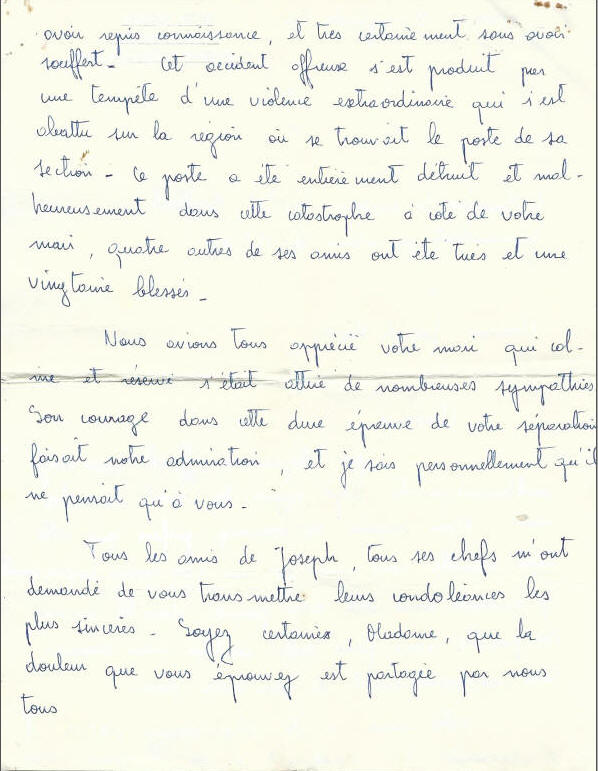 avoir repris connaissance, et très certainement sans avoir
souffert - Cet accident affreux s'est produit par
une tempête d'une violence extraordinaire qui s'est
abattu sur la région où se trouvait le poste de sa
section - Ce poste a été entièrement détruit et mal-
heureusement dans cette catastrophe à coté de votre
mari, quatre autres de ses amis ont été tués et une
vingtaine blessés -
Nous avions tous apprécié votre mari qui cal-
me et réservé s'était attiré de nombreuses sympathies
Son courage dans cette dure épreuve de votre séparation
faisait notre admiration, et je sais personnellement qu'il
ne pensait qu'à vous -
Tous les amis de Joseph, tous ses chefs m'ont
demandé de vous transmettre leurs condoléances les
plus sincères - Soyez certaine, Madame, que la
douleur que vous éprouvez est partagée par nous
tous